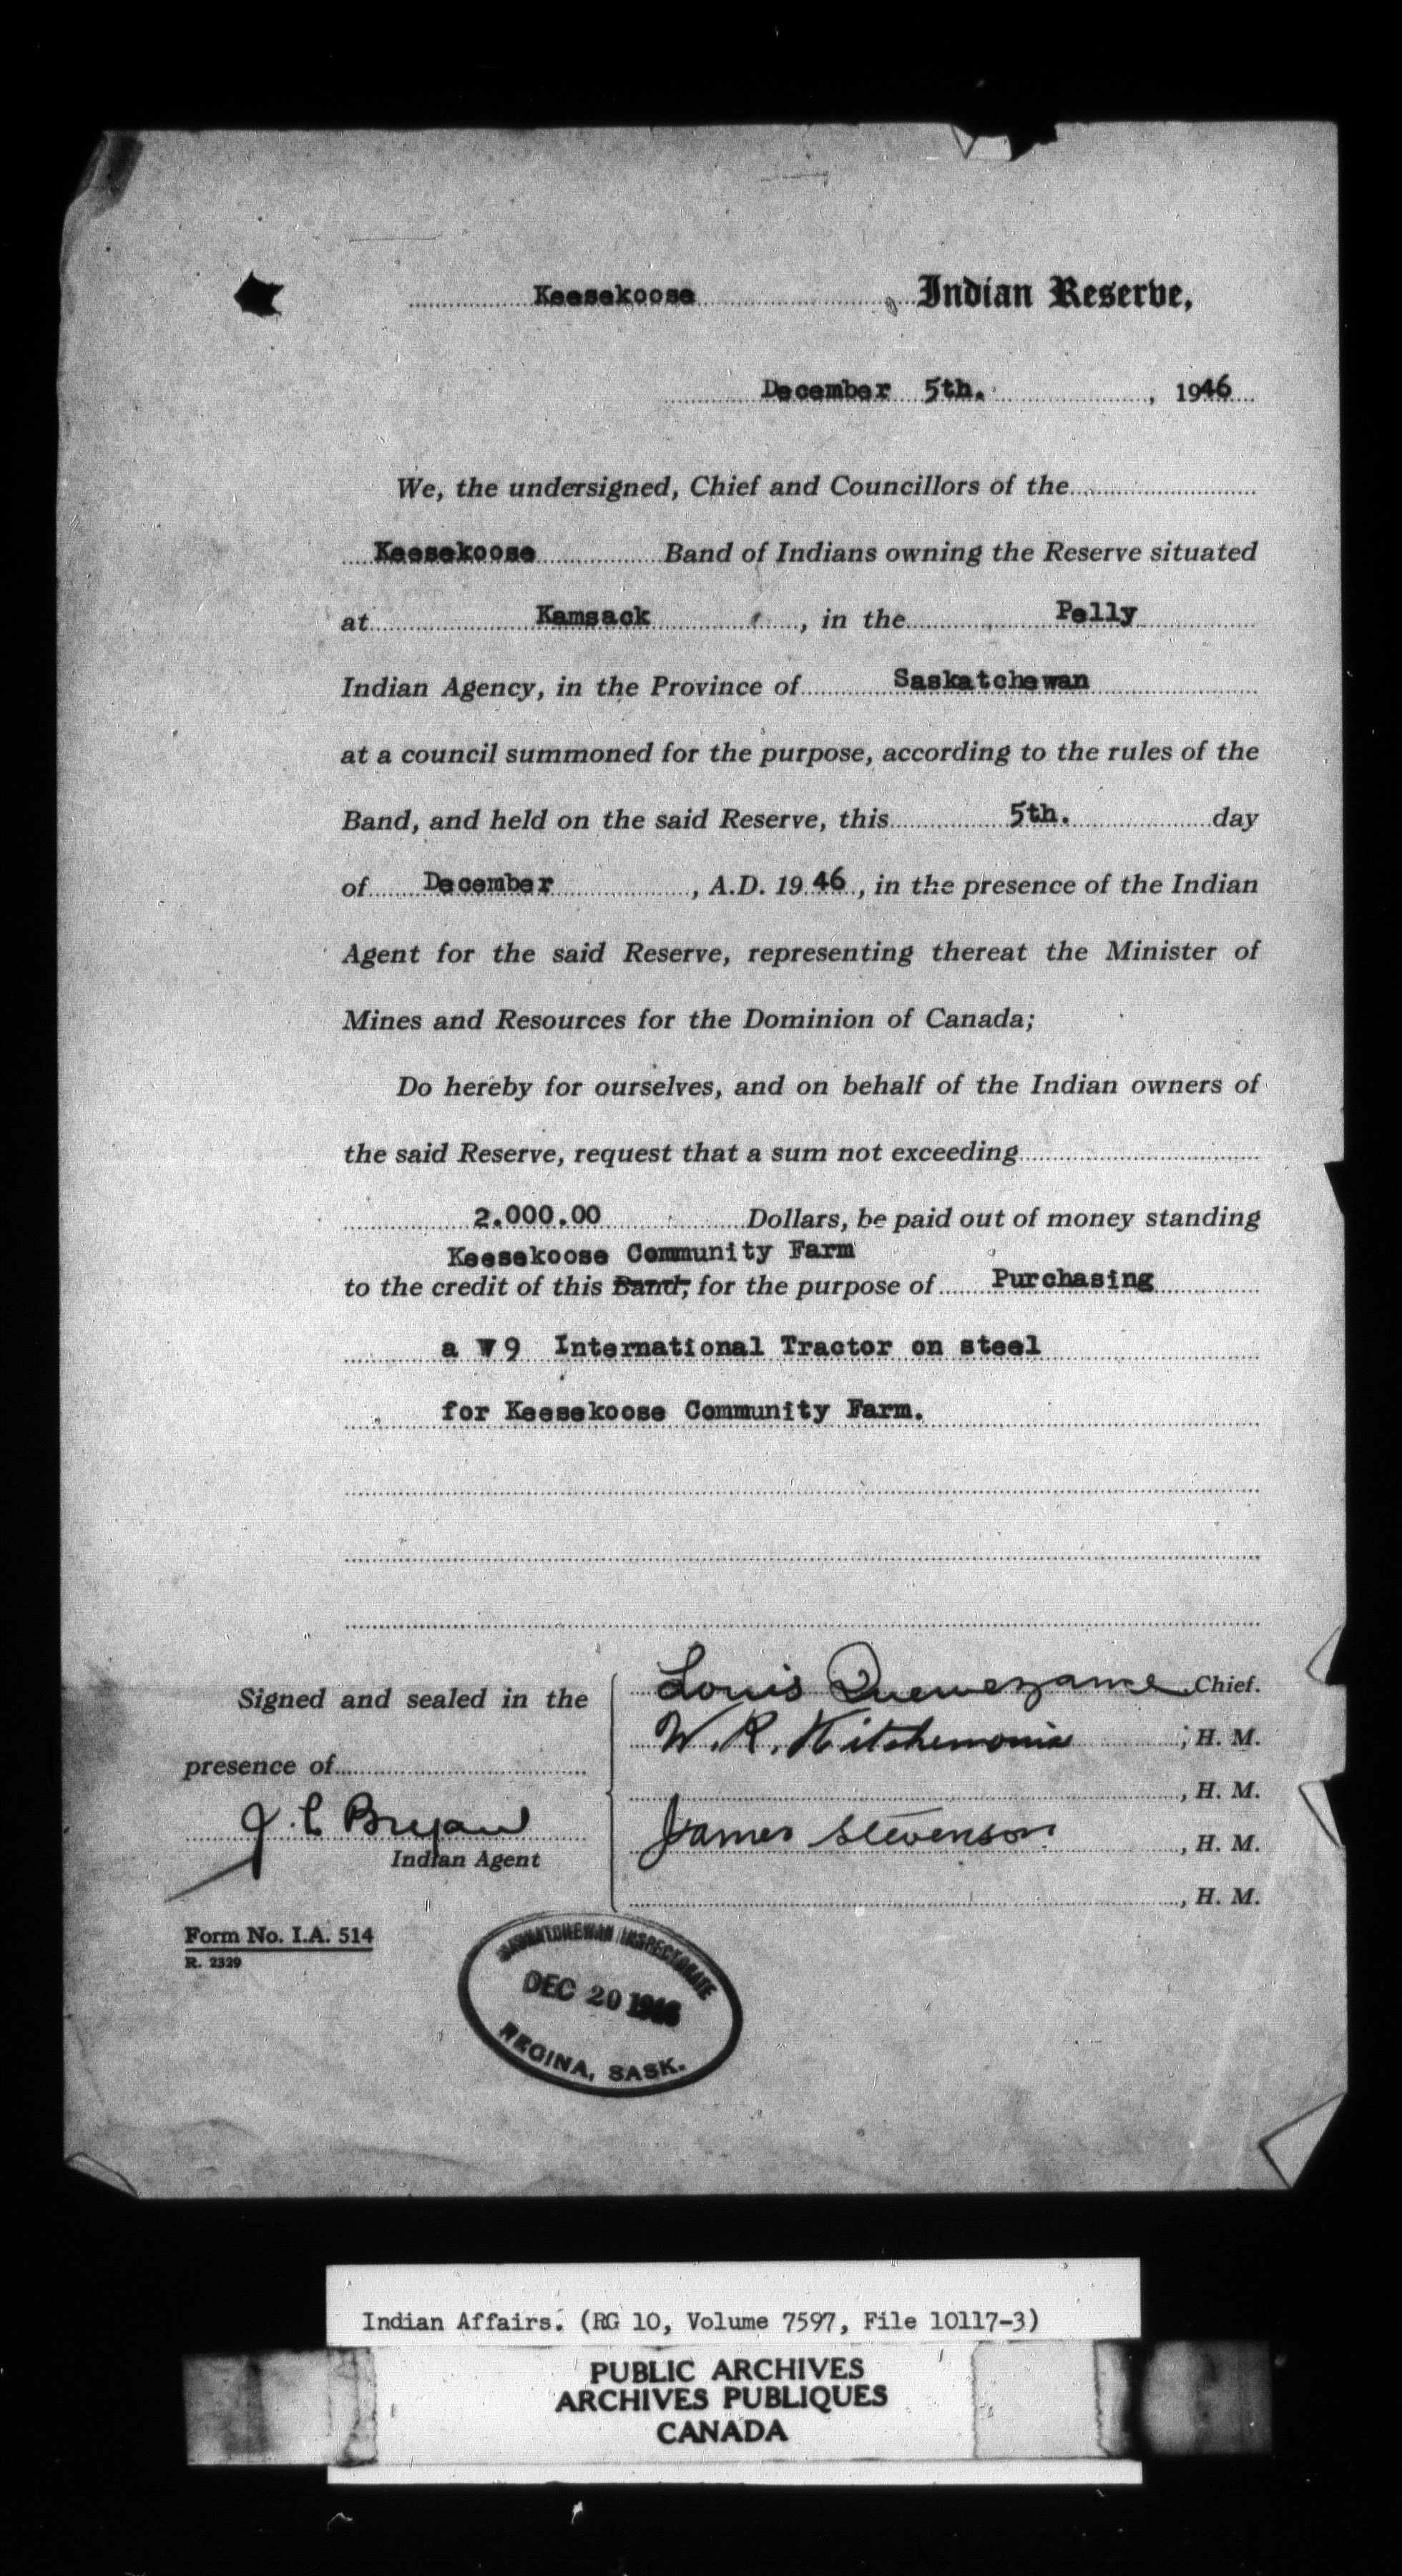 Keesekoose Indian Reserve,
December 5th. , 1946
We, the undersigned, Chief and Councillors of the
Keesekoose Band of Indians owning the Reserve situated
at Kamsack , in the Pelly
Indian Agency, in the Province of Saskatchewan
at a council summoned for the purpose, according to the rules of the
Band, and held on the said Reserve, this 5th. day
of December , A.D. 19 46 , in the presence of the Indian
Agent for the said Reserve, representing thereat the Minister of
Mines and Resources for the Dominion of Canada;
Do hereby for ourselves, and on behalf of the Indian owners of
the said Reserve, request that a sum not exceeding
2.000.00 Dollars, be paid out of money standing
Keesekoose Community Farm
to the credit of this Band, for the purpose of Purchasing
a W 9 International Tractor on steel
for Keesekoose Community Farm.
Louis Quewezance Chief.
Signed and sealed in the
W. R. Kitchemonia , H. M.
presence of
, H. M.
J. L. Bryan
James Stevenson , H. M.
Indian Agent
, H. M.
Form No. I.A. 514
R. 2329
SASKATCHEWAN INSPECTORATE
DEC 20 1946
REGINA, SASK.
Indian Affairs. (RG 10, Volume 7597, File 10117-3)
PUBLIC ARCHIVES
ARCHIVES PUBLIQUES
CANADA